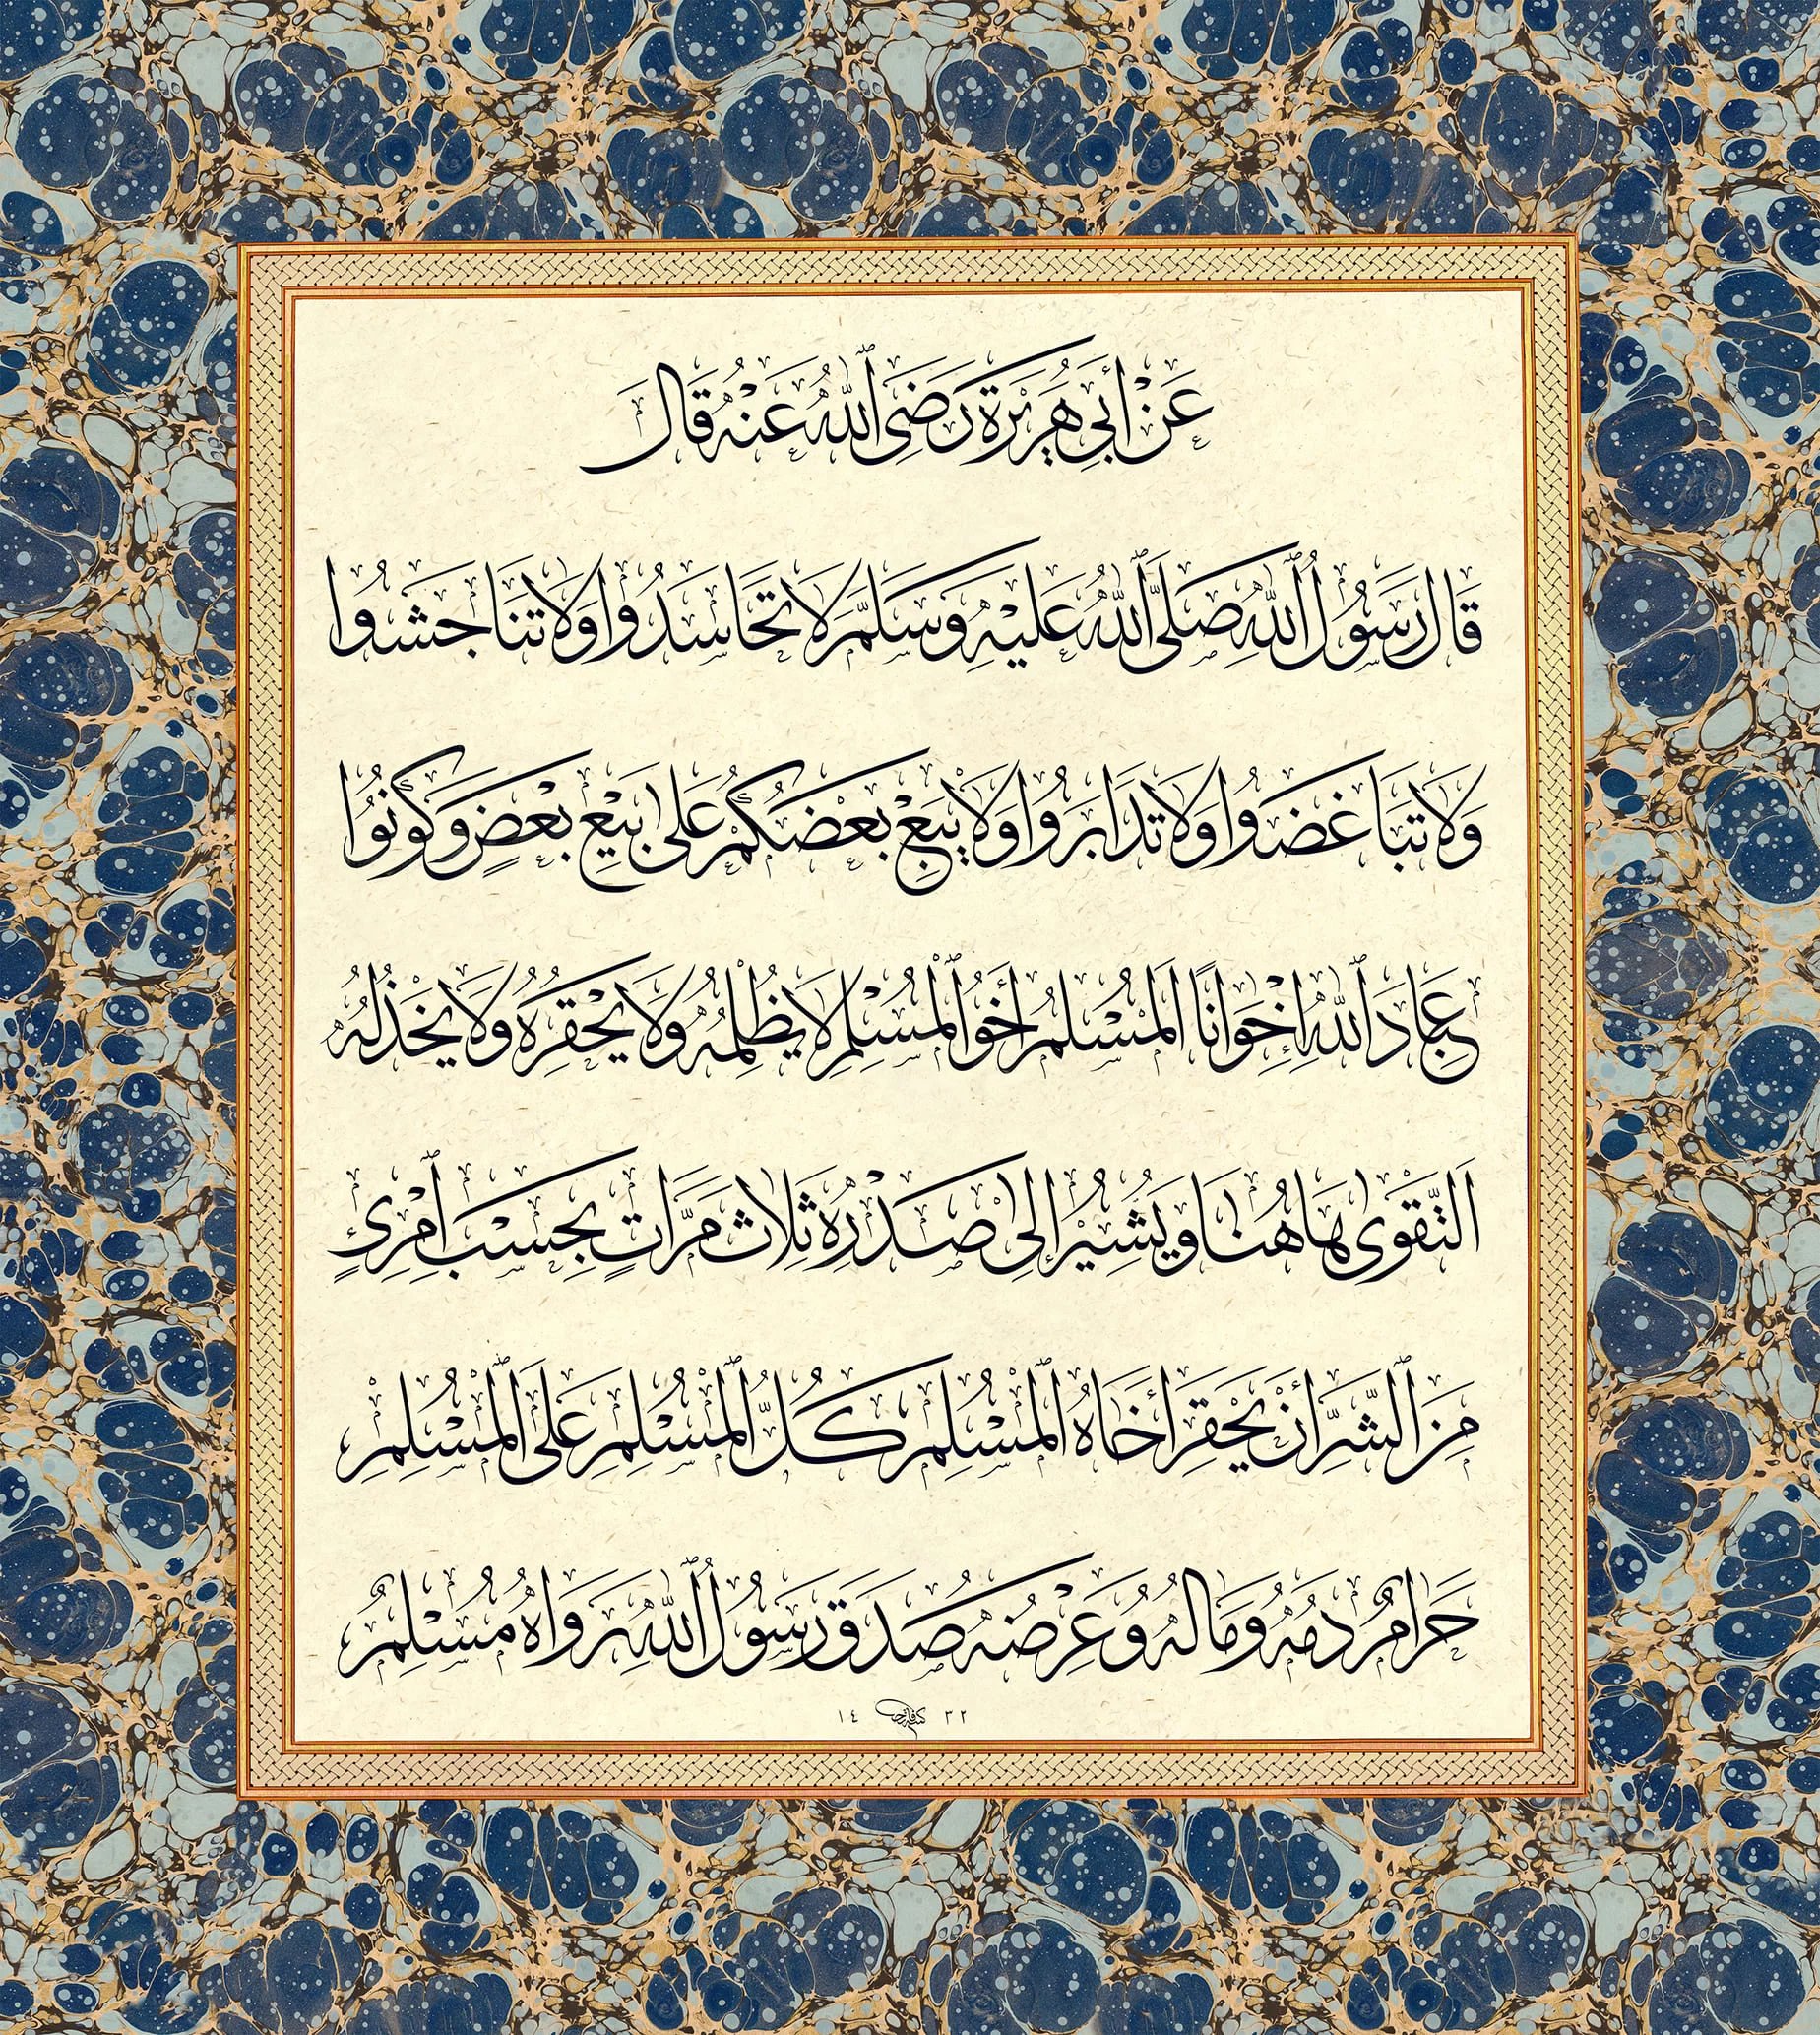 عَنْ أَبِي هُرَيْرَةَ رَضِيَ ٱللّٰهُ عَنْهُ قَالَ
قَالَ رَسُولُ ٱللّٰهِ صَلَّى ٱللّٰهُ عَلَيْهِ وَسَلَّمَ لَا تَحَاسَدُوا وَلَا تَنَاجَشُوا
وَلَا تَبَاغَضُوا وَلَا تَدَابَرُوا وَلَا يَبِعْ بَعْضُكُمْ عَلَى بَيْعِ بَعْضٍ وَكُونُوا
عِبَادَ ٱللّٰهِ إِخْوَانًا اَلْمُسْلِمُ أَخُو ٱلْمُسْلِمِ لَا يَظْلِمُهُ وَلَا يَحْقِرُهُ وَلَا يَخْذُلُهُ
اَلتَّقْوٰى هَاهُنَا وَيُشِيْرُ إِلَى صَدْرِهِ ثَلَاثَ مَرَّاتٍ بِحَسْبِ ٱمْرِئٍ
مِنَ ٱلشَّرِّ أَنْ يَحْقِرَ أَخَاهُ ٱلْمُسْلِمَ كُلُّ ٱلْمُسْلِمِ عَلَى ٱلْمُسْلِمِ
حَرَامٌ دَمُهُ وَمَالُهُ وَعِرْضُهُ صَدَقَ رَسُولُ ٱللّٰهِ رَوَاهُ مُسْلِمٌ
١٤ ٣٢